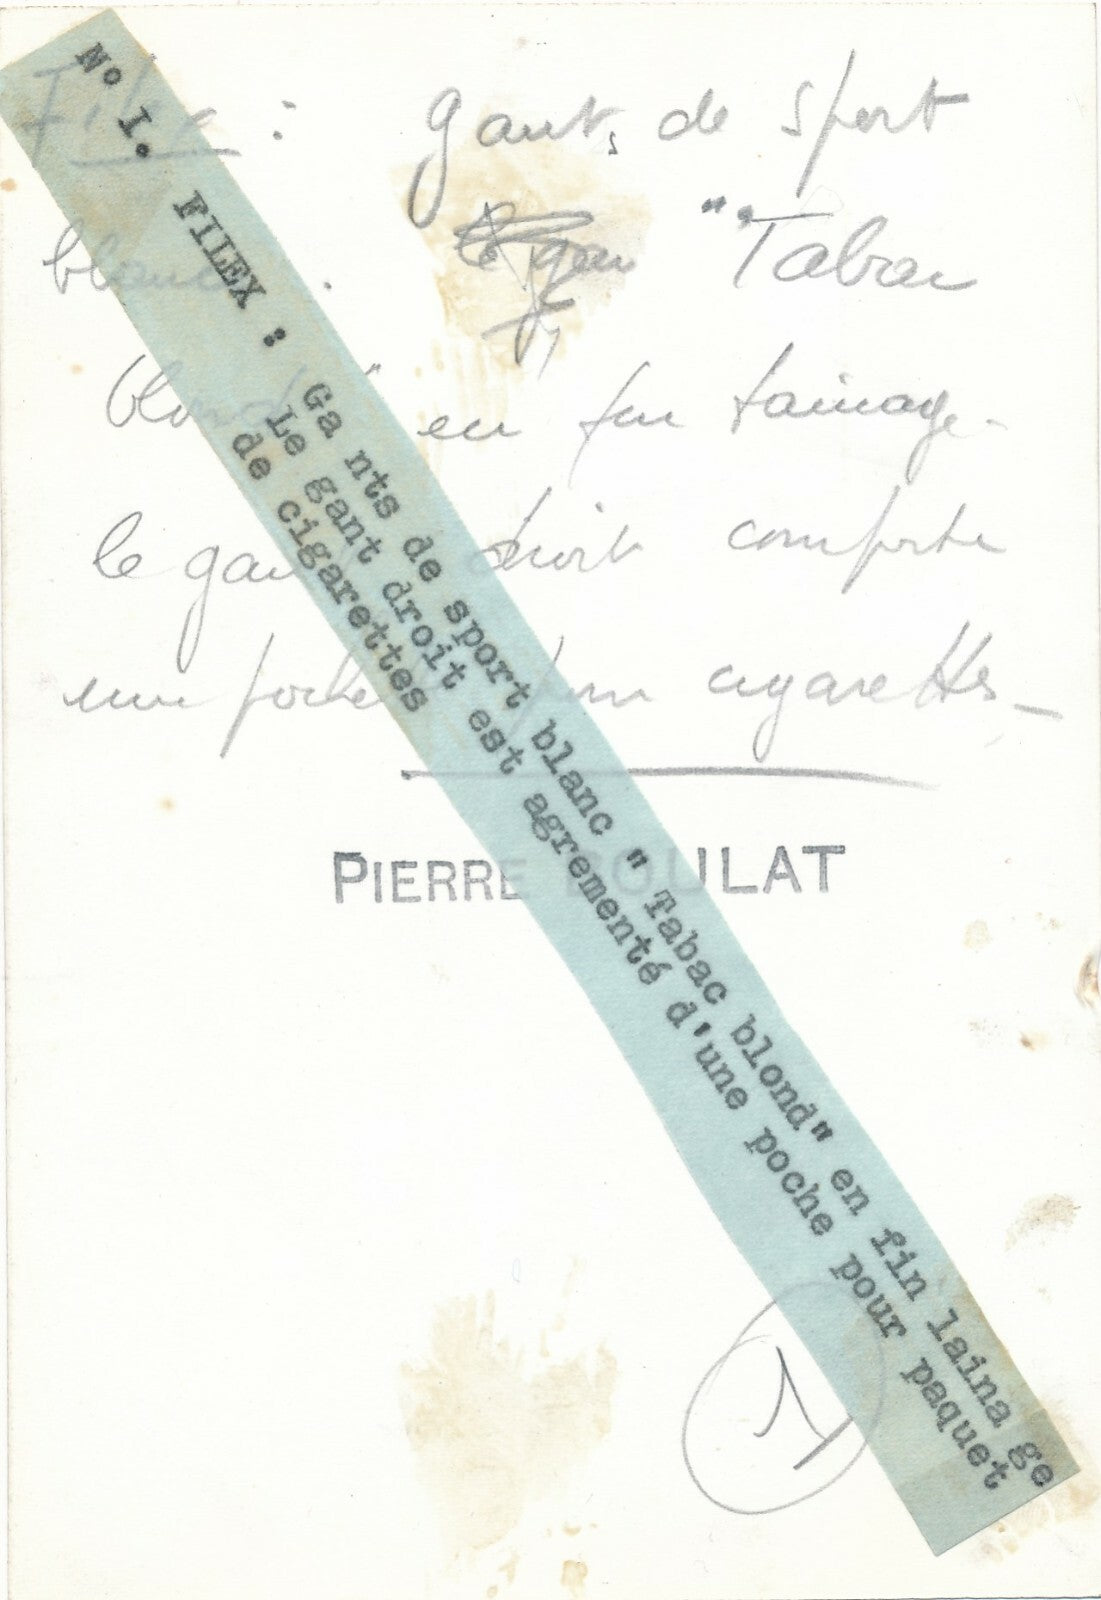 N° I. FILEX : Ga nts de sport blanc " Tabac blond" en fin laina ge
Le gant droit est agrementé d'une poche pour paquet
de cigarettes
: gants de sport
blanc . "Tabac
blond en fin lainage -
le gant droit comporte
une poche pour cigarettes -
PIERRE BOULAT
1